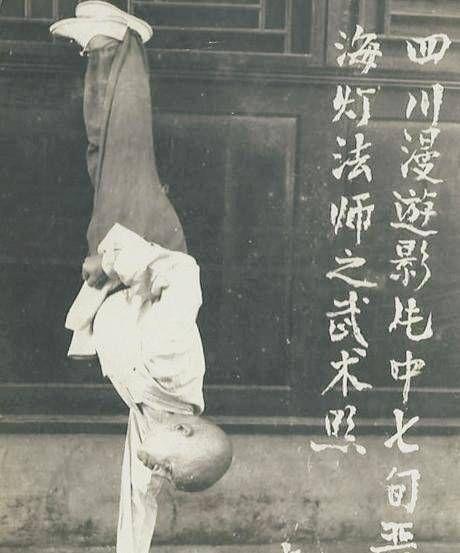 四川漫遊影片中七旬
海灯法師之武术照